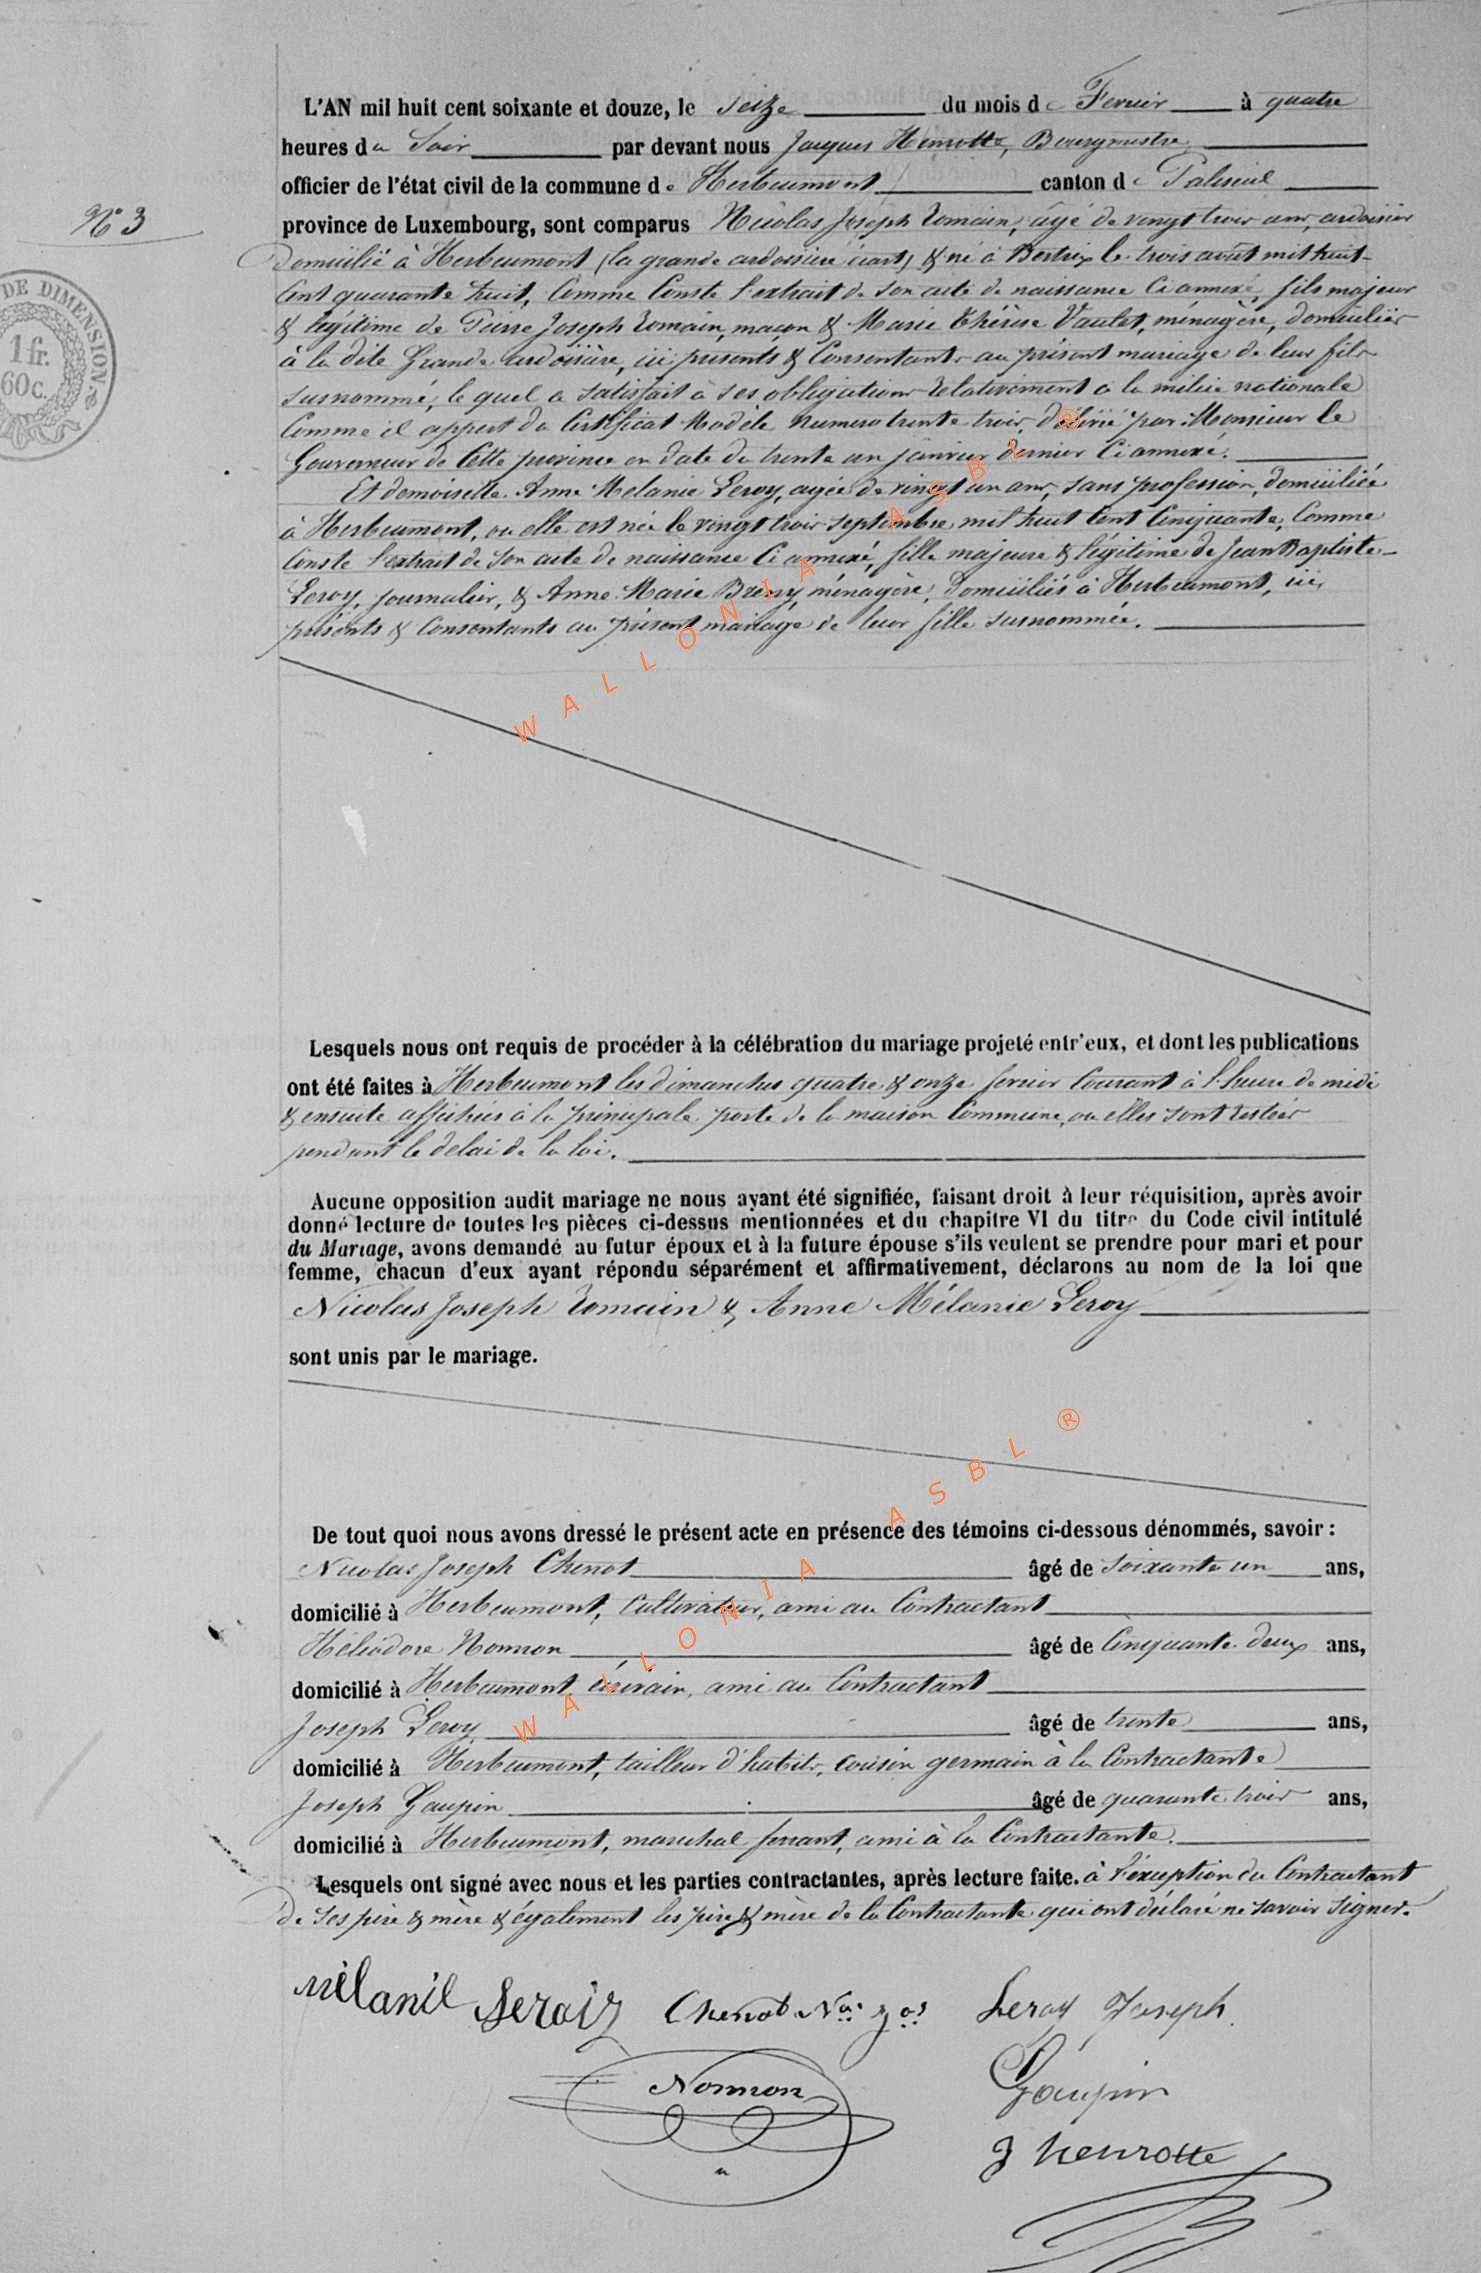 L'AN mil huit cent soixante et douze, le Seize du mois de Fevrier à quatre
heures du Soir par devant nous Jacques Henrotte, Bourgmestre
officier de l'état civil de la commune de Herbeumont canton de Paliseul
N° 3
province de Luxembourg, sont comparus Nicolas Joseph Romain, âgé de vingt trois ans, ardoisier
DE DIMENSION
1 fr.
60 c.
Domicilié à Herbeumont (la grande ardoisière écart) & né à Bertrix le trois août mil huit-
Cent quarante huit, Comme Conste l'extrait de son acte de naissance Ci annexé, fils majeur
& légitime de Pierre Joseph Romain, maçon & Marie Thérèse Vaulet, ménagère, domiciliés
à la dite Grande ardoisière, ici présents & Consentants au présent mariage de leur fils
susnommé, le quel a satisfait à ses obligations relativement à la milice nationale
Comme il appert du Certificat Modèle numero trente trois, délivré par Monsieur le
Gouverneur de Cette province en date du trente un janvier dernier Ci annexé.
Et demoiselle Anne Melanie Leroy, agée de vingt un ans, sans profession, domiciliée
à Herbeumont, ou elle est née le vingt trois septembre mil huit Cent Cinquante, Comme
Conste l'extrait de son acte de naissance Ci annexé, fille majeure & légitime de Jean Baptiste-
Leroy, journalier, & Anne Marie Brény, ménagère, Domiciliés à Herbeumont, ici
présents & Consentants au présent mariage de leur fille susnommée.
WALLONIA ASBL ®
Lesquels nous ont requis de procéder à la célébration du mariage projeté entr'eux, et dont les publications
ont été faites à Herbeumont les dimanches quatre & onze fevrier Courant à l'heure de midi
& ensuite affichées à la principale porte de la maison Commune, ou elles sont restées
pendant le delai de la loi.
Aucune opposition audit mariage ne nous ayant été signifiée, faisant droit à leur réquisition, après avoir
donné lecture de toutes les pièces ci-dessus mentionnées et du chapitre VI du titre du Code civil intitulé
du Mariage, avons demandé au futur époux et à la future épouse s'ils veulent se prendre pour mari et pour
femme, chacun d'eux ayant répondu séparément et affirmativement, déclarons au nom de la loi que
Nicolas Joseph Romain & Anne Mélanie Leroy
sont unis par le mariage.
WALLONIA ASBL ®
De tout quoi nous avons dressé le présent acte en présence des témoins ci-dessous dénommés, savoir :
Nicolas Joseph Chenot âgé de soixante un ans,
domicilié à Herbeumont, Cultivateur, ami au Contractant
Héliodore Nonnon âgé de Cinquante deux ans,
domicilié à Herbeumont, écrivain, ami au Contractant
Joseph Leroy âgé de trente ans,
domicilié à Herbeumont, tailleur d'habits, cousin germain à la Contractante
Joseph Gaupin âgé de quarante trois ans,
domicilié à Herbeumont, marechal ferrant, ami à la Contractante.
Lesquels ont signé avec nous et les parties contractantes, après lecture faite. à l'exception du Contractant
De ses père & mère & également les père & mère de la Contractante qui ont déclaré ne savoir signer.
Mélanie Leroiy Chenot Nas Jos Leroy Joseph
Nonnon Gaupin
J henrotte